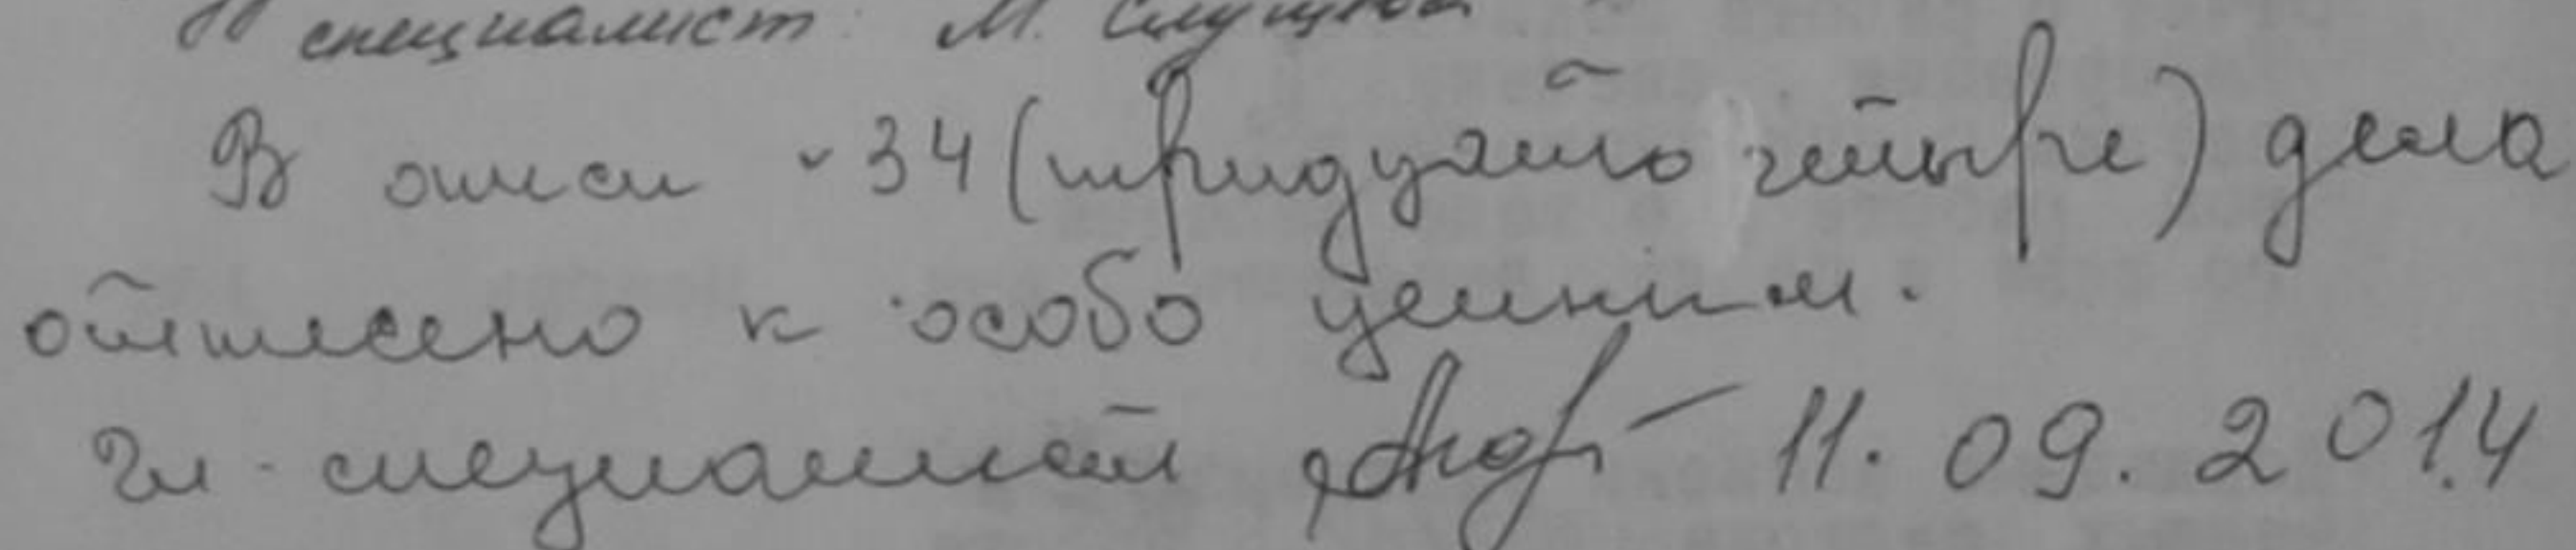 специалист М.
В описи 34 (тридцать четыре) дела
отнесено к особо ценным.
Гл. специалист 11.09.2014